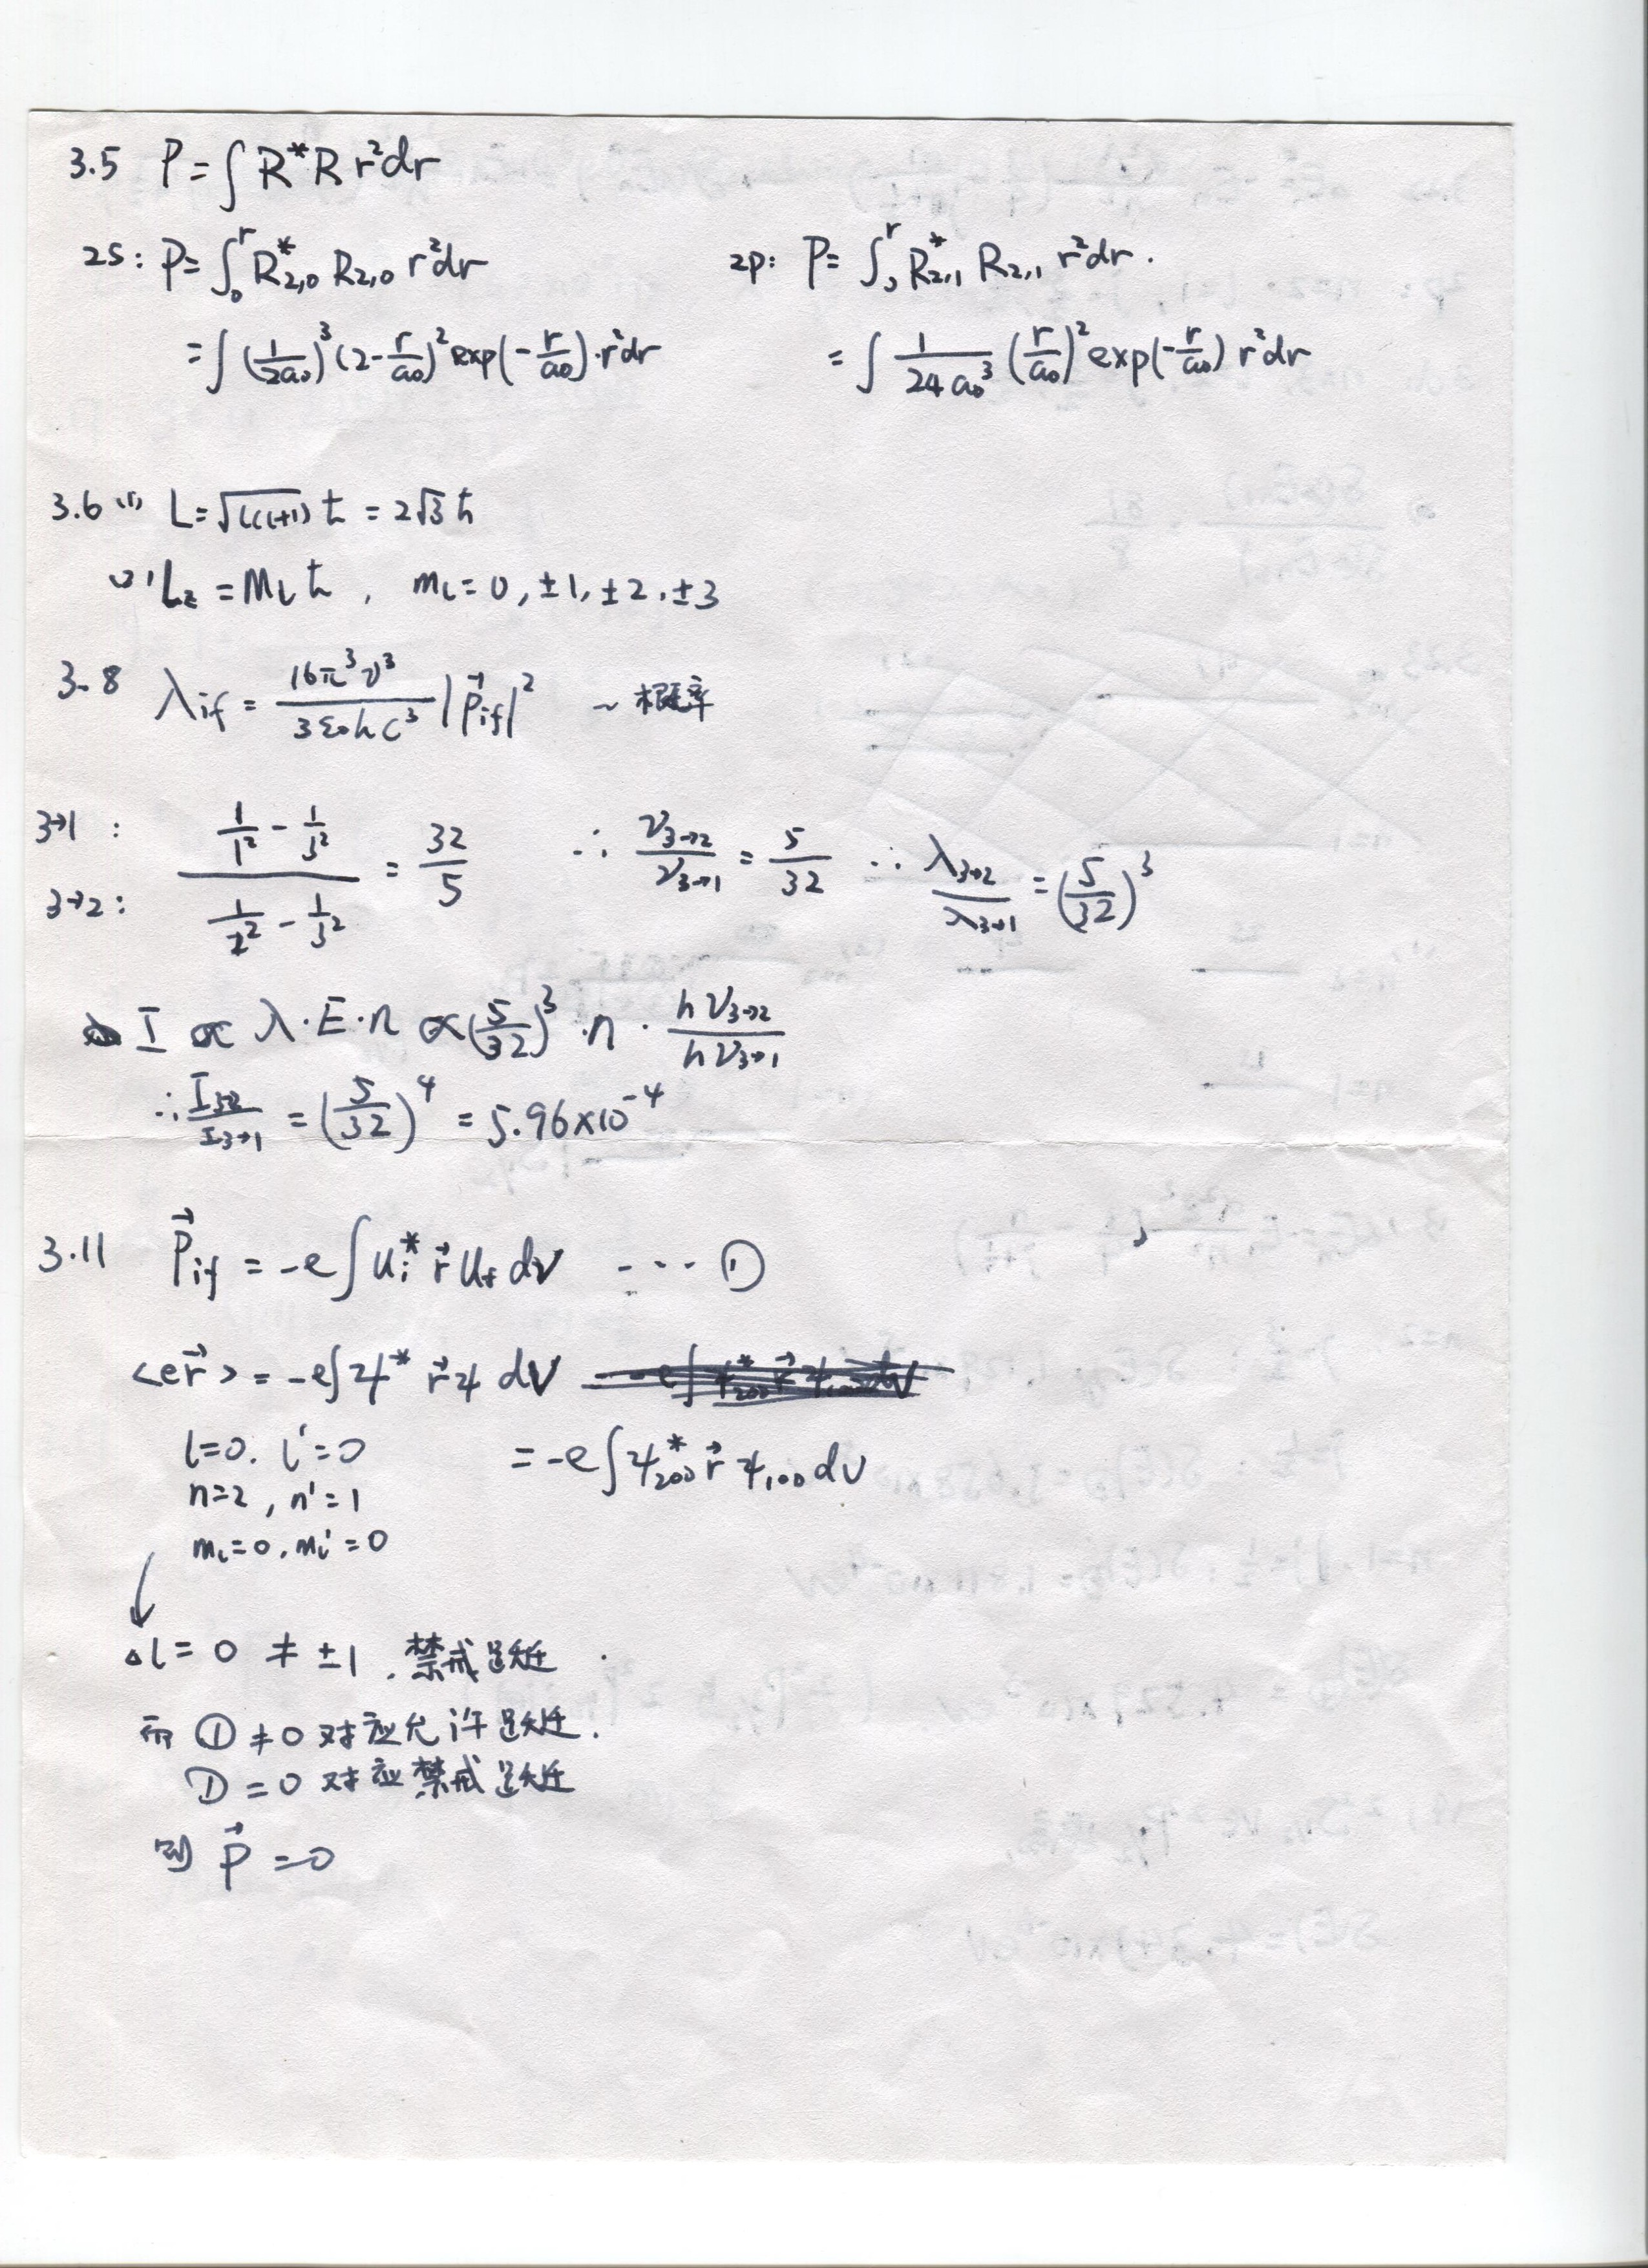 3.5 P = ∫ R* R r²dr
2S: P = ∫₀^r R*₂,₀ R₂,₀ r²dr
= ∫ (1/2a₀)³ (2 - r/a₀)² exp(-r/a₀)·r²dr
2p: P = ∫₀^r R*₂,₁ R₂,₁ r²dr.
= ∫ 1/(24a₀³) (r/a₀)² exp(-r/a₀) r²dr
3.6 (1) L = √(l(l+1)) ħ = 2√3 ħ
(2) L_z = m_l ħ, m_l = 0, ±1, ±2, ±3
3-8 λ_if = (16π³ν³)/(3ε₀hc³) |p⃗_if|² ~ 概率
3→1 :
3→2 :
(1/1² - 1/3²)/(1/2² - 1/3²) = 32/5 ∴ ν₃→₂/ν₃→₁ = 5/32 ∴ λ₃→₂/λ₃→₁ = (5/32)³
I ∝ λ·E·n ∝ (5/32)³ ·n · hν₃→₂/hν₃→₁
∴ I₃→₂/I₃→₁ = (5/32)⁴ = 5.96×10⁻⁴
3.11 P⃗_if = -e ∫ u_i* r⃗ u_f dv ---- ①
<er⃗> = -e∫ψ* r⃗ψ dV
l=0. l'=0
n=2, n'=1
m_l=0, m_l'=0
= -e ∫ψ*₂₀₀ r⃗ ψ₁₀₀ dV
Δl = 0 ≠ ±1. 禁戒跃迁
而 ① ≠0 对应允许跃迁.
① = 0 对应禁戒跃迁
则 p⃗ = 0